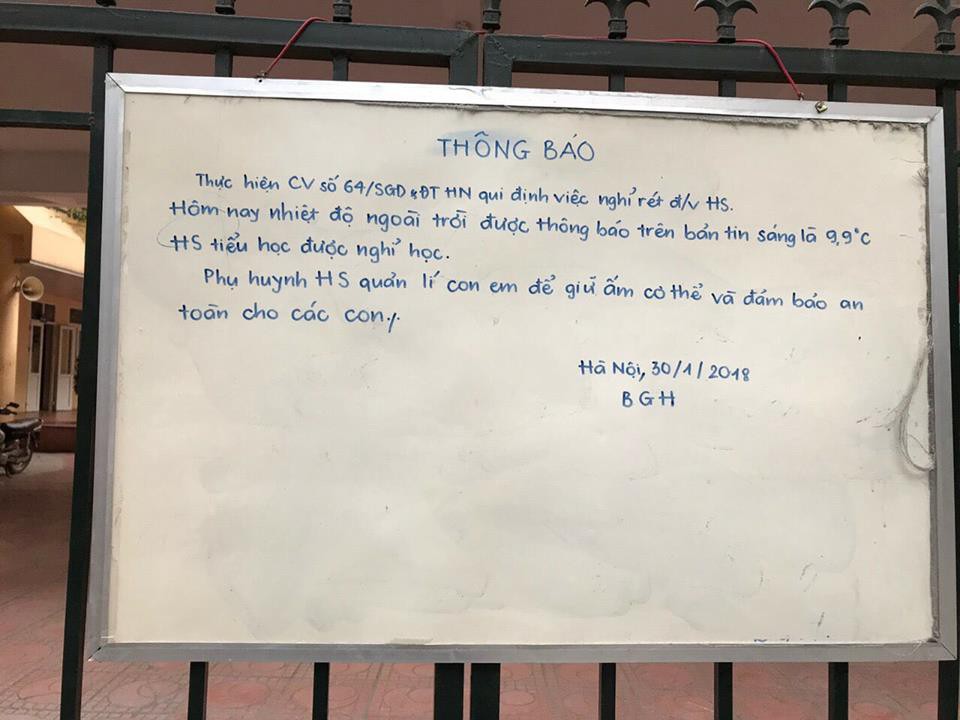 THÔNG BÁO
Thực hiện CV số 64/SGD&ĐT HN qui định việc nghỉ rét đ/v HS.
Hôm nay nhiệt độ ngoài trời được thông báo trên bản tin sáng là 9,9°C
HS tiểu học được nghỉ học.
Phụ huynh HS quản lí con em để giữ ấm cơ thể và đảm bảo an
toàn cho các con./.
Hà Nội, 30/1/2018
BGH